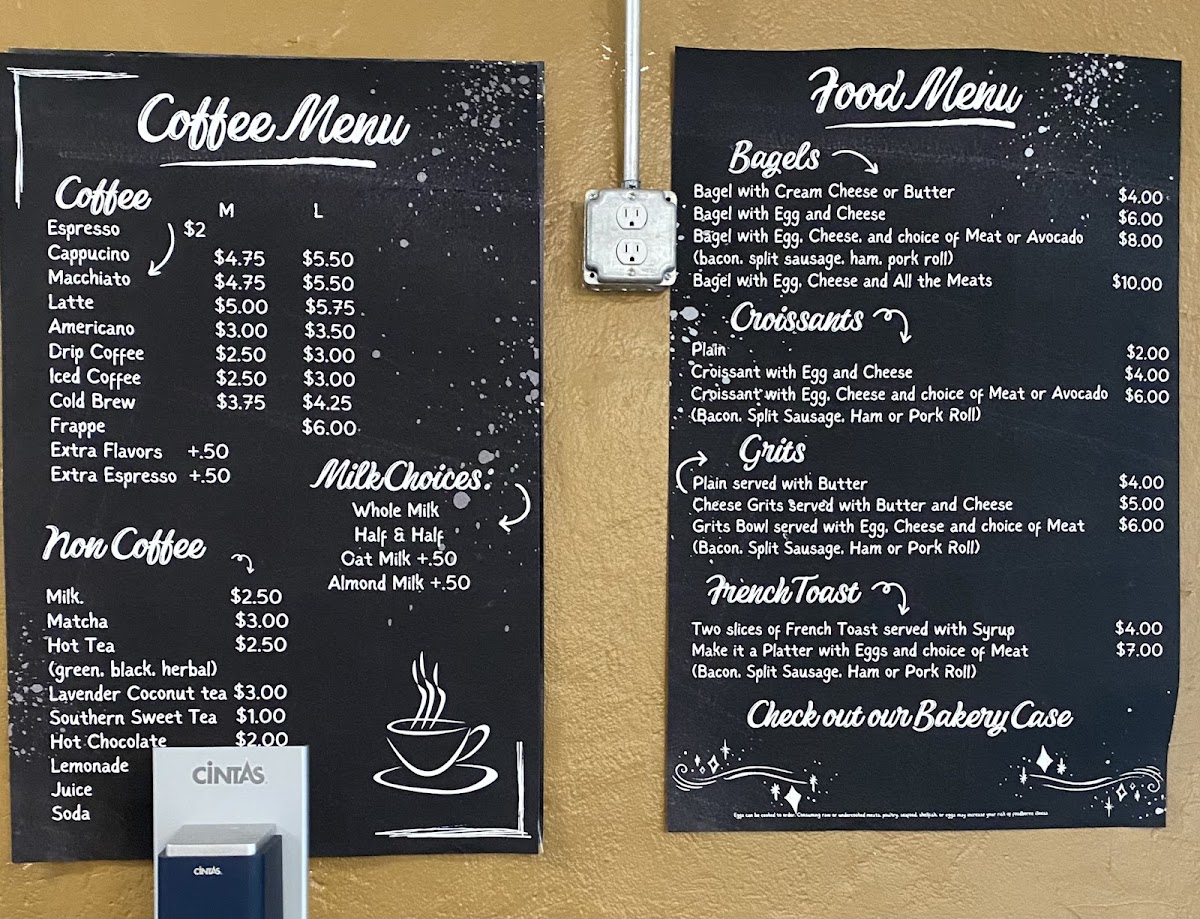 Coffee Menu
Coffee
M L
Espresso $2
Cappucino $4.75 $5.50
Macchiato $4.75 $5.50
Latte $5.00 $5.75
Americano $3.00 $3.50
Drip Coffee $2.50 $3.00
Iced Coffee $2.50 $3.00
Cold Brew $3.75 $4.25
Frappe $6.00
Extra Flavors +.50
Extra Espresso +.50
Milk Choices:
Whole Milk
Half & Half
Oat Milk +.50
Almond Milk +.50
Non Coffee
Milk $2.50
Matcha $3.00
Hot Tea $2.50
(green, black, herbal)
Lavender Coconut tea $3.00
Southern Sweet Tea $1.00
Hot Chocolate $2.00
Lemonade
Juice
Soda
CINTAS
CINTAS
Food Menu
Bagels
Bagel with Cream Cheese or Butter $4.00
Bagel with Egg and Cheese $6.00
Bagel with Egg, Cheese, and choice of Meat or Avocado $8.00
(bacon, split sausage, ham, pork roll)
Bagel with Egg, Cheese and All the Meats $10.00
Croissants
Plain $2.00
Croissant with Egg and Cheese $4.00
Croissant with Egg, Cheese and choice of Meat or Avocado $6.00
(Bacon, Split Sausage, Ham or Pork Roll)
Grits
Plain served with Butter $4.00
Cheese Grits Served with Butter and Cheese $5.00
Grits Bowl served with Egg, Cheese and choice of Meat $6.00
(Bacon, Split Sausage, Ham or Pork Roll)
French Toast
Two slices of French Toast served with Syrup $4.00
Make it a Platter with Eggs and choice of Meat $7.00
(Bacon, Split Sausage, Ham or Pork Roll)
Check out our Bakery Case
Eggs can be cooked to order. Consuming raw or undercooked meats, poultry, seafood, shellfish, or eggs may increase your risk of foodborne illness